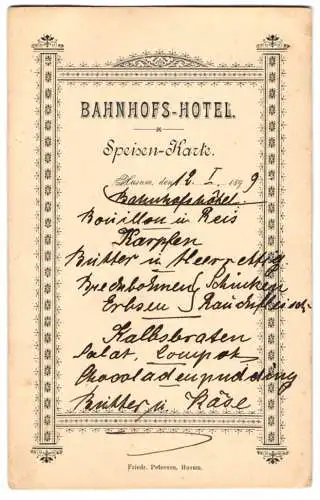 BAHNHOFS-HOTEL.
Speisen-Karte.
Husum, den 12. I. 1899
Bahnhofshôtel.
Bouillon m Reis
Karpfen
Butter u Meerrettig
Brechbohnen } Schinken
Erbsen } Rauchfleisch
Kalbsbraten
Salat, Compot
Chocoladenpudding
Butter u Käse
Friedr. Petersen, Husum.